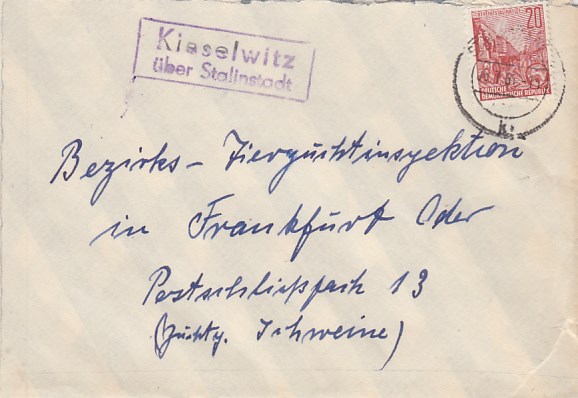 Kieselwitz
über Stalinstadt
20
DEUTSCHE
DEMOKRATISCHE REPUBLIK
Bezirks- Tierzuchtinspektion
in Frankfurt Oder
Postschließfach 13
(Zuchtg. Schweine)